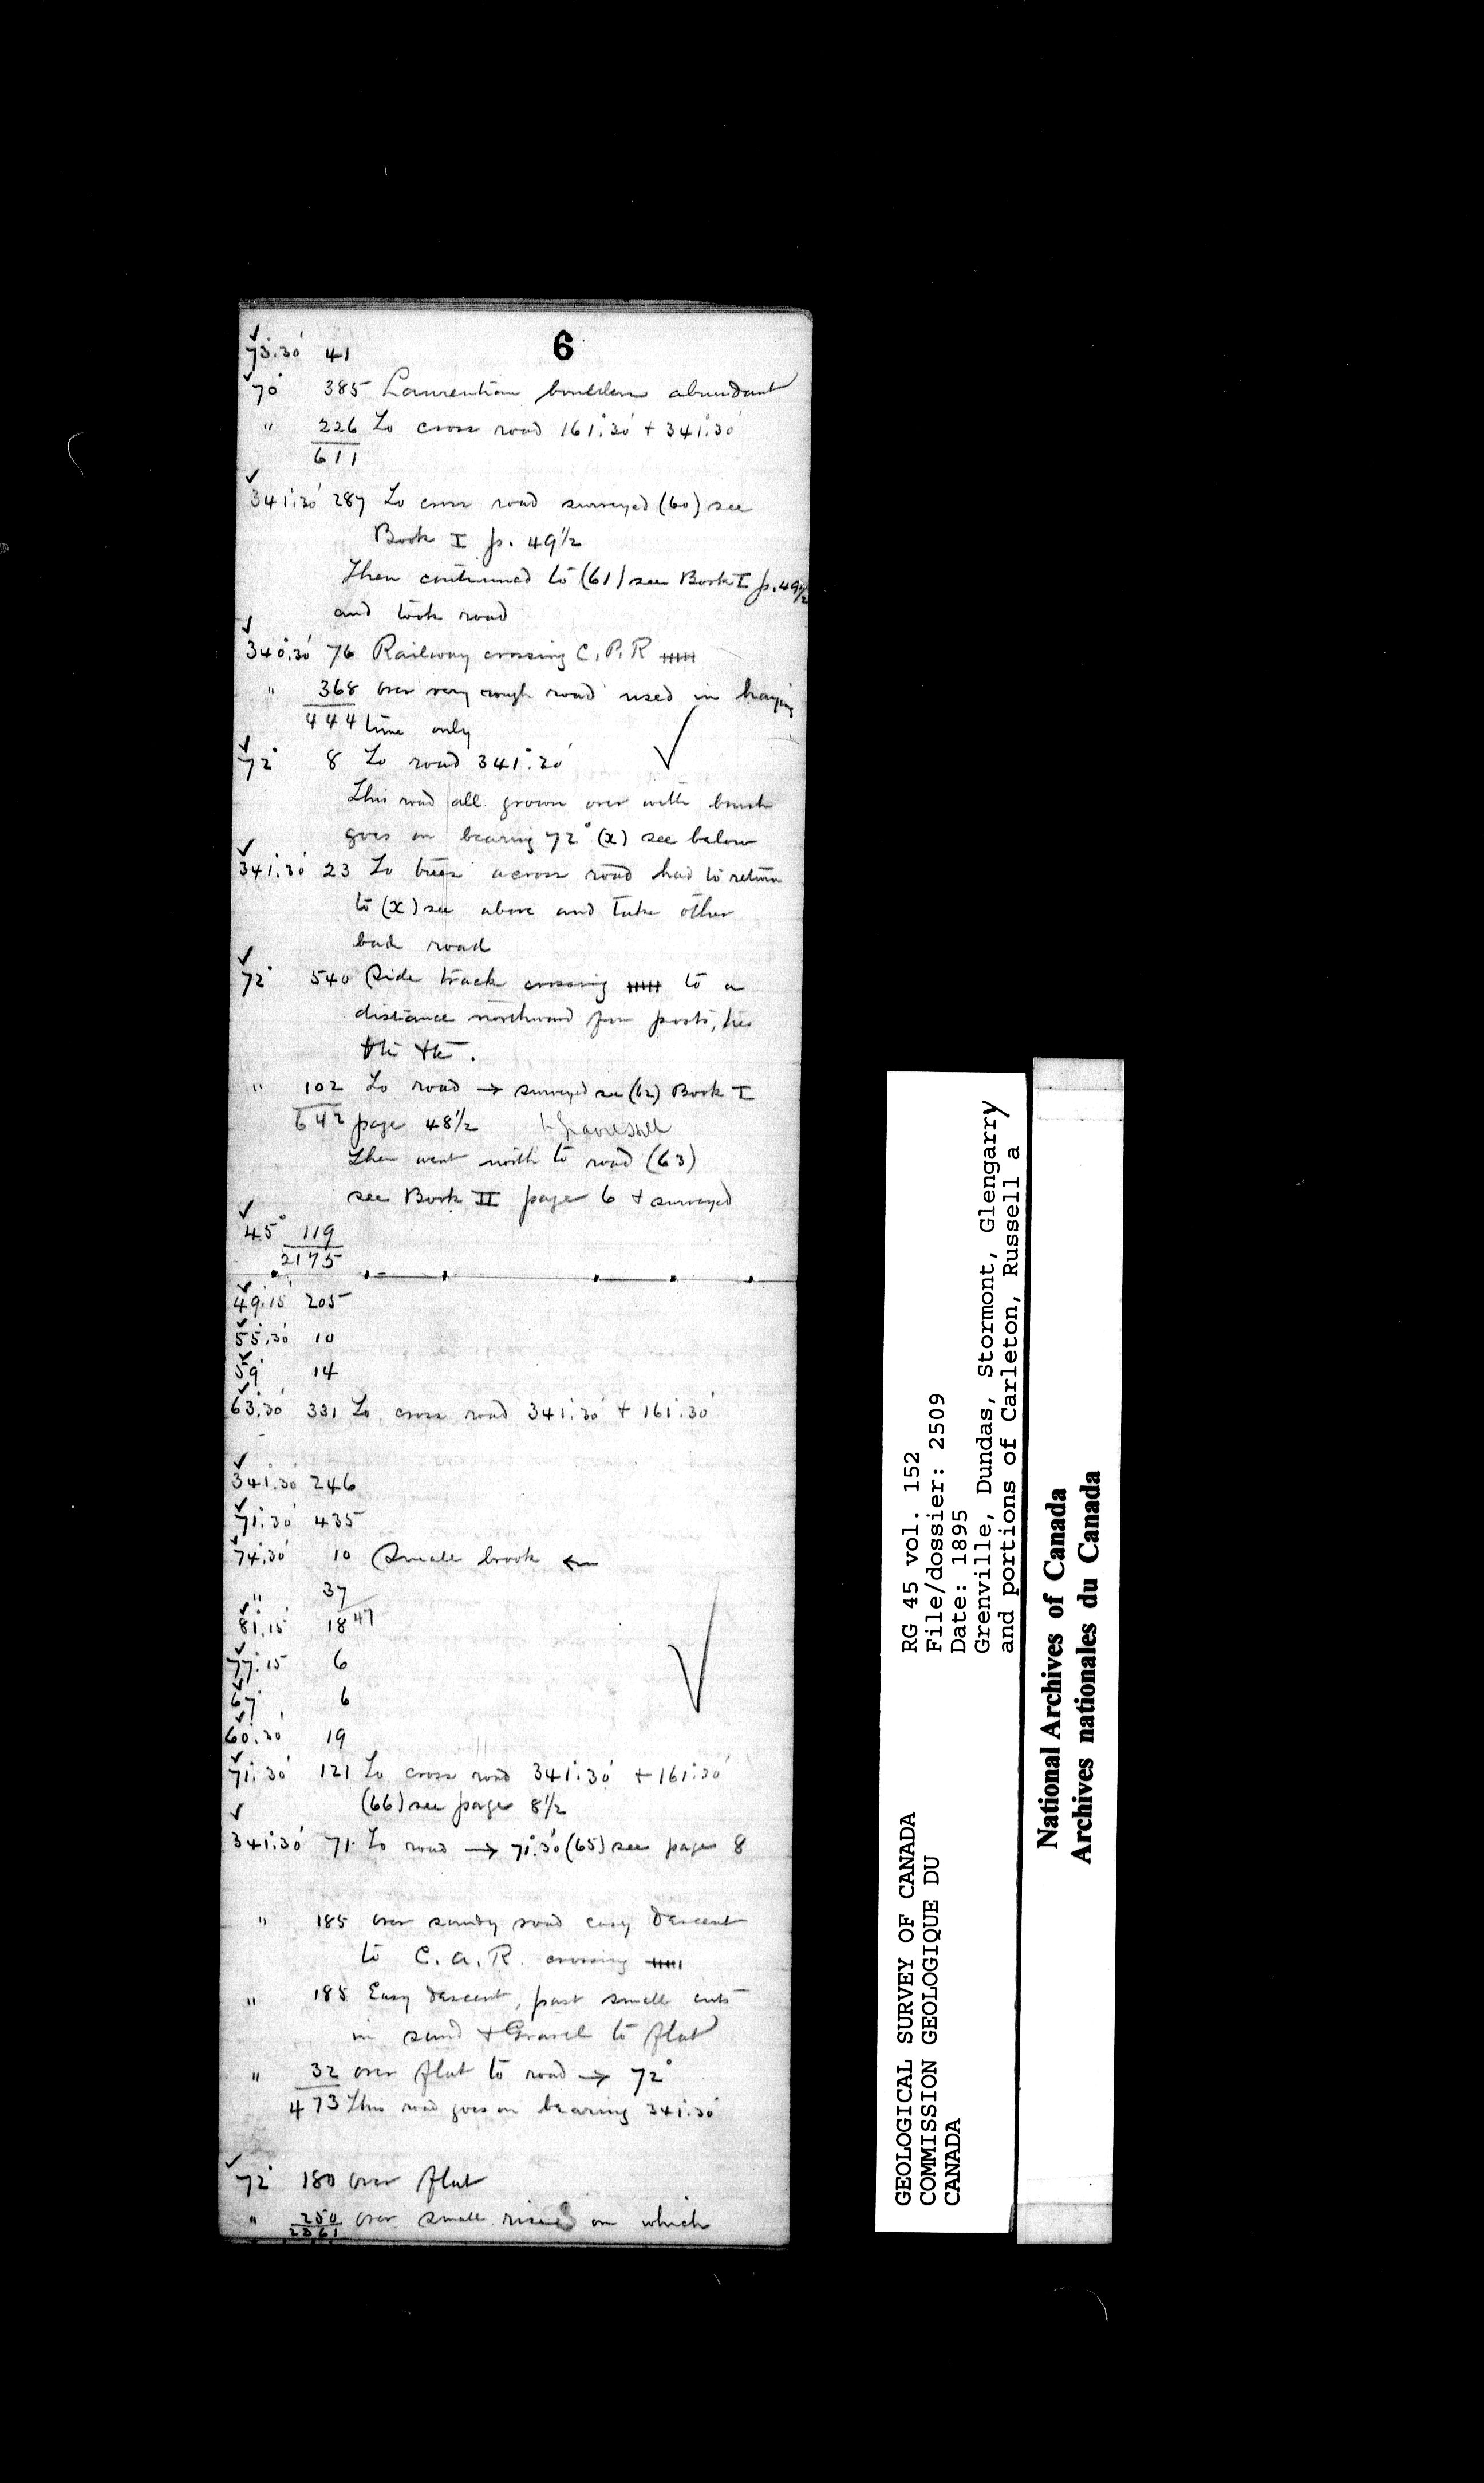 6
73°.30' 41
70° 385 Laurentian boulders abundant
" 226 To cross road 161°.30' + 341°.30'
611
341°.30' 287 To cross road surveyed (60) see
Book I p. 49½
Then continued to (61) see Book I p. 49½
and took road
340°.30' 76 Railway crossing C.P.R
" 368 over very rough road used in haying
444 time only
72° 8 To road 341°.30'
This road all grown over with brush
goes on bearing 72° (x) see below
341°.30' 23 To trees across road had to return
to (x) see above and take other
bad road
72° 540 Side track crossing to a
distance northward for posts, ties
102 To road → surveyed see (62) Book I
642 page 48½
Then went north to road (63)
see Book II page 6 + surveyed
45° 119
2175
49°.15' 205
55°.30' 10
59° 14
63°.30' 331 To cross road 341°.30' + 161°.30'
341°.30' 246
71°.30' 435
74°.30' 10 Small brook ←
" 37
81°.15' 18 47
77°.15 6
67° 6
60°.30' 19
71°.30' 121 To cross road 341°.30' + 161°.30'
(66) see page 8½
341°.30' 71 To road → 71°.30' (65) see page 8
" 185 over sandy road easy descent
to C.A.R. crossing
" 185 Easy descent, past small cuts
in sand + Gravel to flat
" 32 over flat to road → 72°
473 This road goes on bearing 341°.30'
72° 180 over flat
" 250 over small rises on which
2361
GEOLOGICAL SURVEY OF CANADA
COMMISSION GEOLOGIQUE DU
CANADA
RG 45 vol. 152
File/dossier: 2509
Date: 1895
Grenville, Dundas, Stormont, Glengarry
and portions of Carleton, Russell a
National Archives of Canada
Archives nationales du Canada